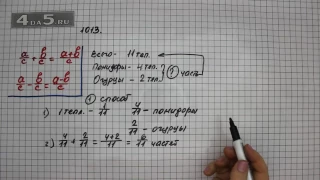 4DA5.RU
1013.
a/c + b/c = a+b/c
a/c - b/c = a-b/c
Всего - 11 теп.
Помидоры - 4 теп.
Огурцы - 2 теп.
? часть
① способ
1) 1 теп. - 1/11
4/11 - помидоры
2/11 - огурцы
2) 4/11 + 2/11 = 4+2/11 = 6/11 частей